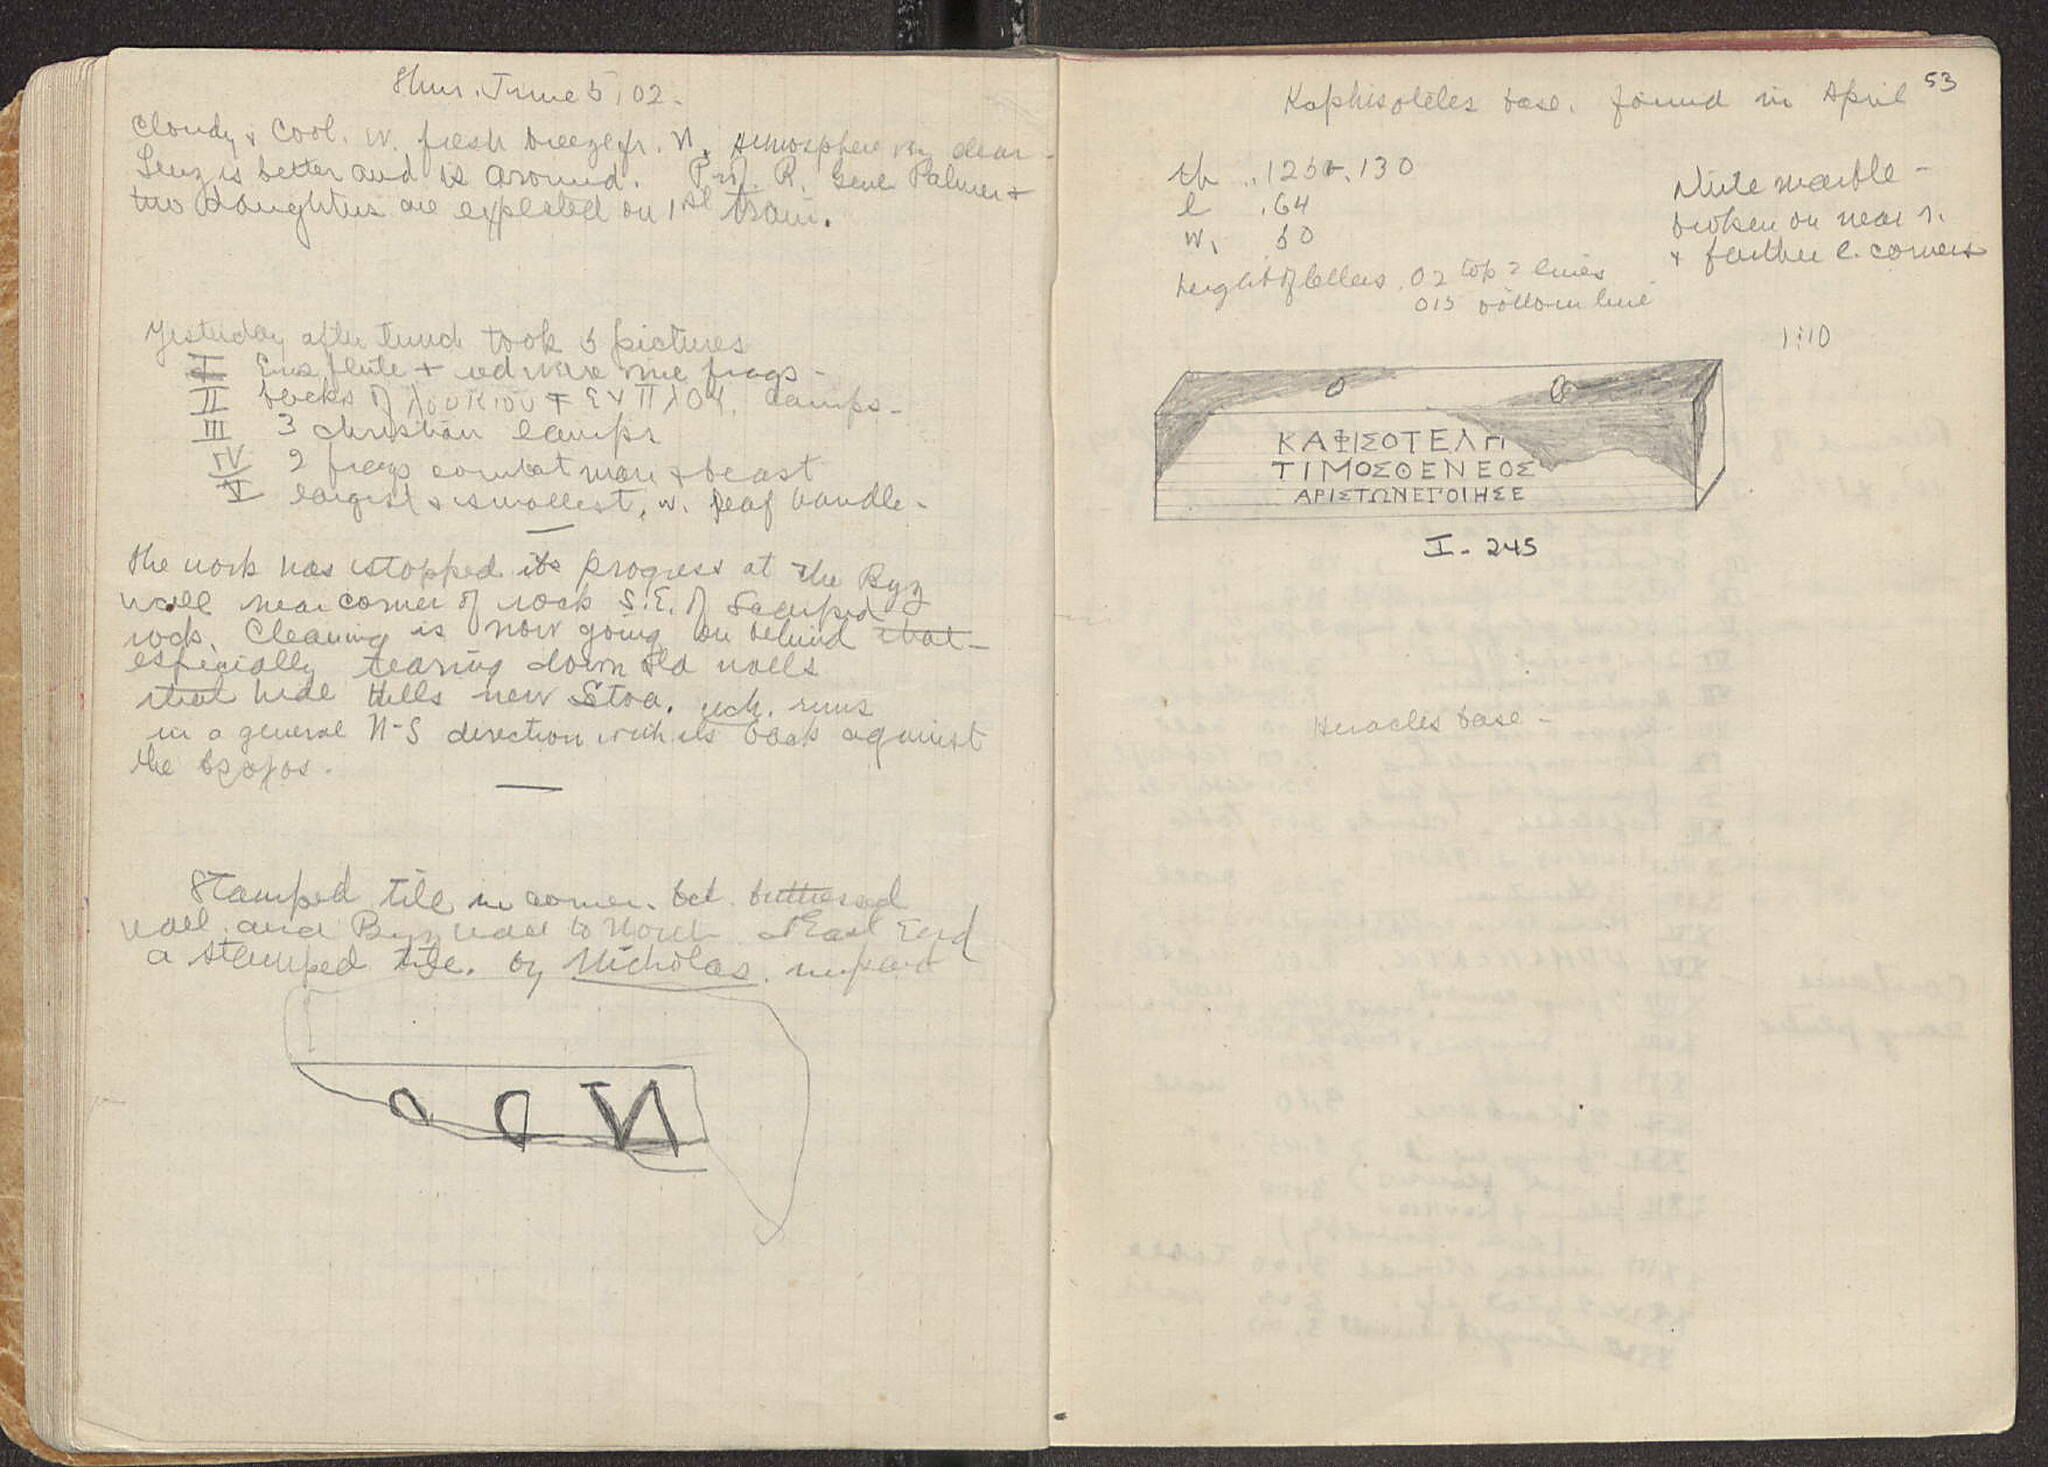 Thur. June 5, 02.
Cloudy & Cool. W. fresh breeze fr. N. Atmosphere very clear.
is better and is around. Prof. R. Genl Palmer &
two daughters are expected on 1st train.
Yesterday after lunch took 5 pictures
I flute + red ware frags -
II backs of lamps -
III 3 Christian lamps
IV 2 frags combat man & beast
V largest & smallest, w. leaf handle -
The work has stopped its progress at the Byz
wall near corner of rock S.E. of Scarped
rock. Cleaning is now going on behind that -
especially tearing down old walls
that hide Hills new Stoa. wch. runs
in a general N-S direction with its back against
the
Stamped tile in corner. bet. buttressed
wall and Byz wall to North at East End
a stamped tile. by Nicholas.
53
Kaphisoteles base. found in April
th .125-.130
l .64
w. 50
height of letters .02 top 2 lines
015 bottom line
White marble -
broken on near r.
& farther l. corners
1:10
ΚΑΦΙΣΟΤΕΛΗ
ΤΙΜΟΣΘΕΝΕΟΣ
ΑΡΙΣΤΩΝΕΠΟΙΗΣΕ
I - 245
Heracles base -